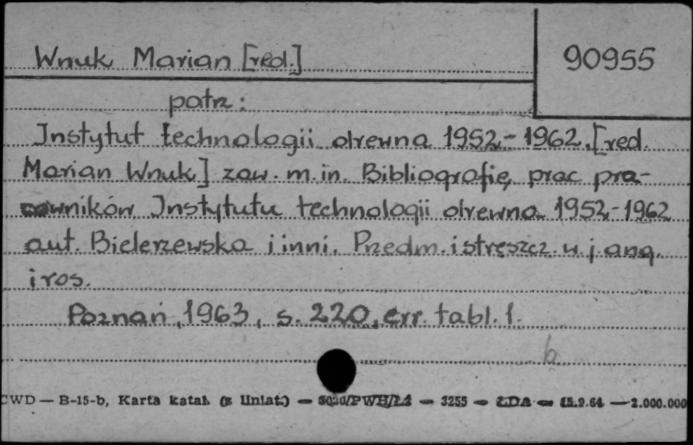 Wnuk Marian [red.]
90955
patrz:
Instytut technologii drewna 1952-1962. [red.
Marian Wnuk] zaw. m.in. Bibliografię prac pra-
cowników Instytutu technologii drewna 1952-1962
aut. Bielerzewska i inni. Przedm. i streszcz. w j. ang.
i ros.
Poznań, 1963, s. 220, err. tabl. 1.
b
CWD — B-15-b, Karta katal. (z liniat.) — — 3255 — ŁDA — 15.9.64 — 2.000.000